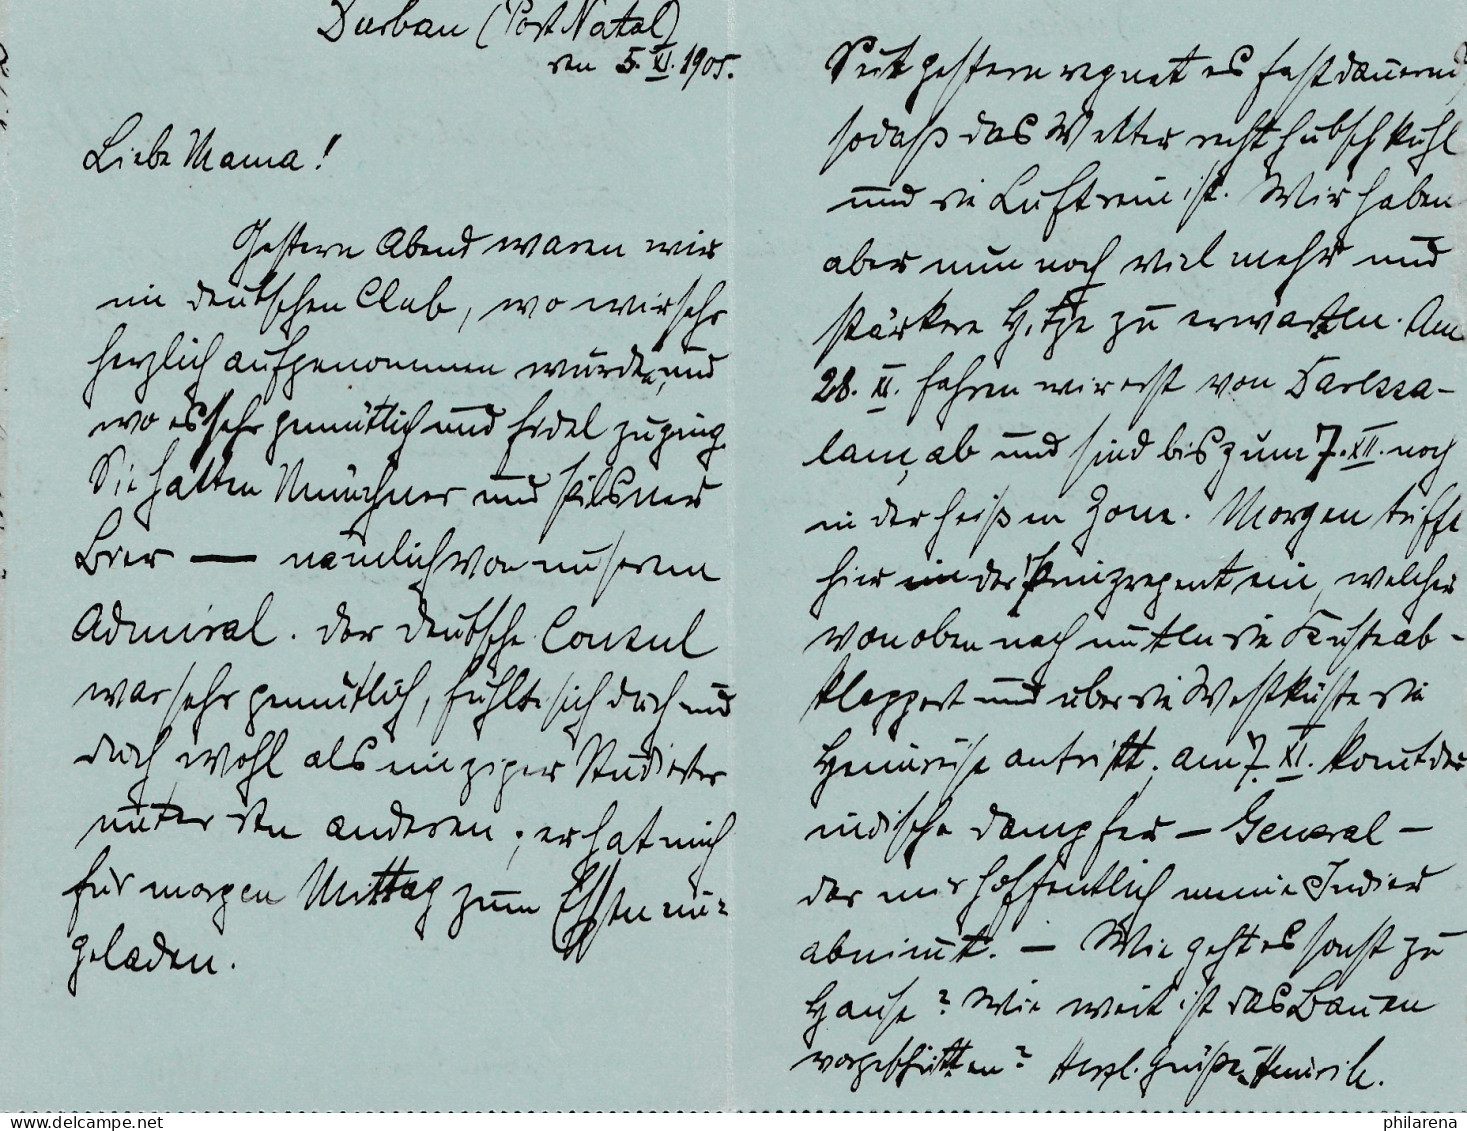 Durban (Port Natal)
den 5. XI. 1905.
Liebe Mama!
Gestern Abend waren wir
im deutschen Club, wo wir sehr
herzlich aufgenommen wurden, und
wo es sehr gemütlich und fidel zuging.
Sie hatten Münchner und Pilsner
Bier — nämlich von unserem
Admiral. Der deutsche Consul
war sehr gemütlich, fühlte sich doch und
doch wohl als einziger Studierter
unter den anderen; er hat mich
für morgen Mittag zum Essen ein-
geladen.
Seit gestern regnet es fast dauernd,
sodaß das Wetter recht hübsch kühl
und die Luft rein ist. Wir haben
aber nun noch viel mehr und
stärkere Hitze zu erwarten. Am
28. XI. fahren wir erst von Daressa-
lam, ab und sind bis zum 7. XII. noch
in der heißen Zone. Morgen trifft
hier der Prinzregent ein, welcher
von oben nach unten die Küste ab-
klappert und über die Westküste die
Heimreise antritt. Am 7. XI. komt der
indische Dampfer — General —
der mir hoffentlich meine Inder
abnimt. — Wie geht es sonst zu
Hause? Wie weit ist das Bauen
vorgeschritten? Herzl. Grüße Heinrich.
philarena